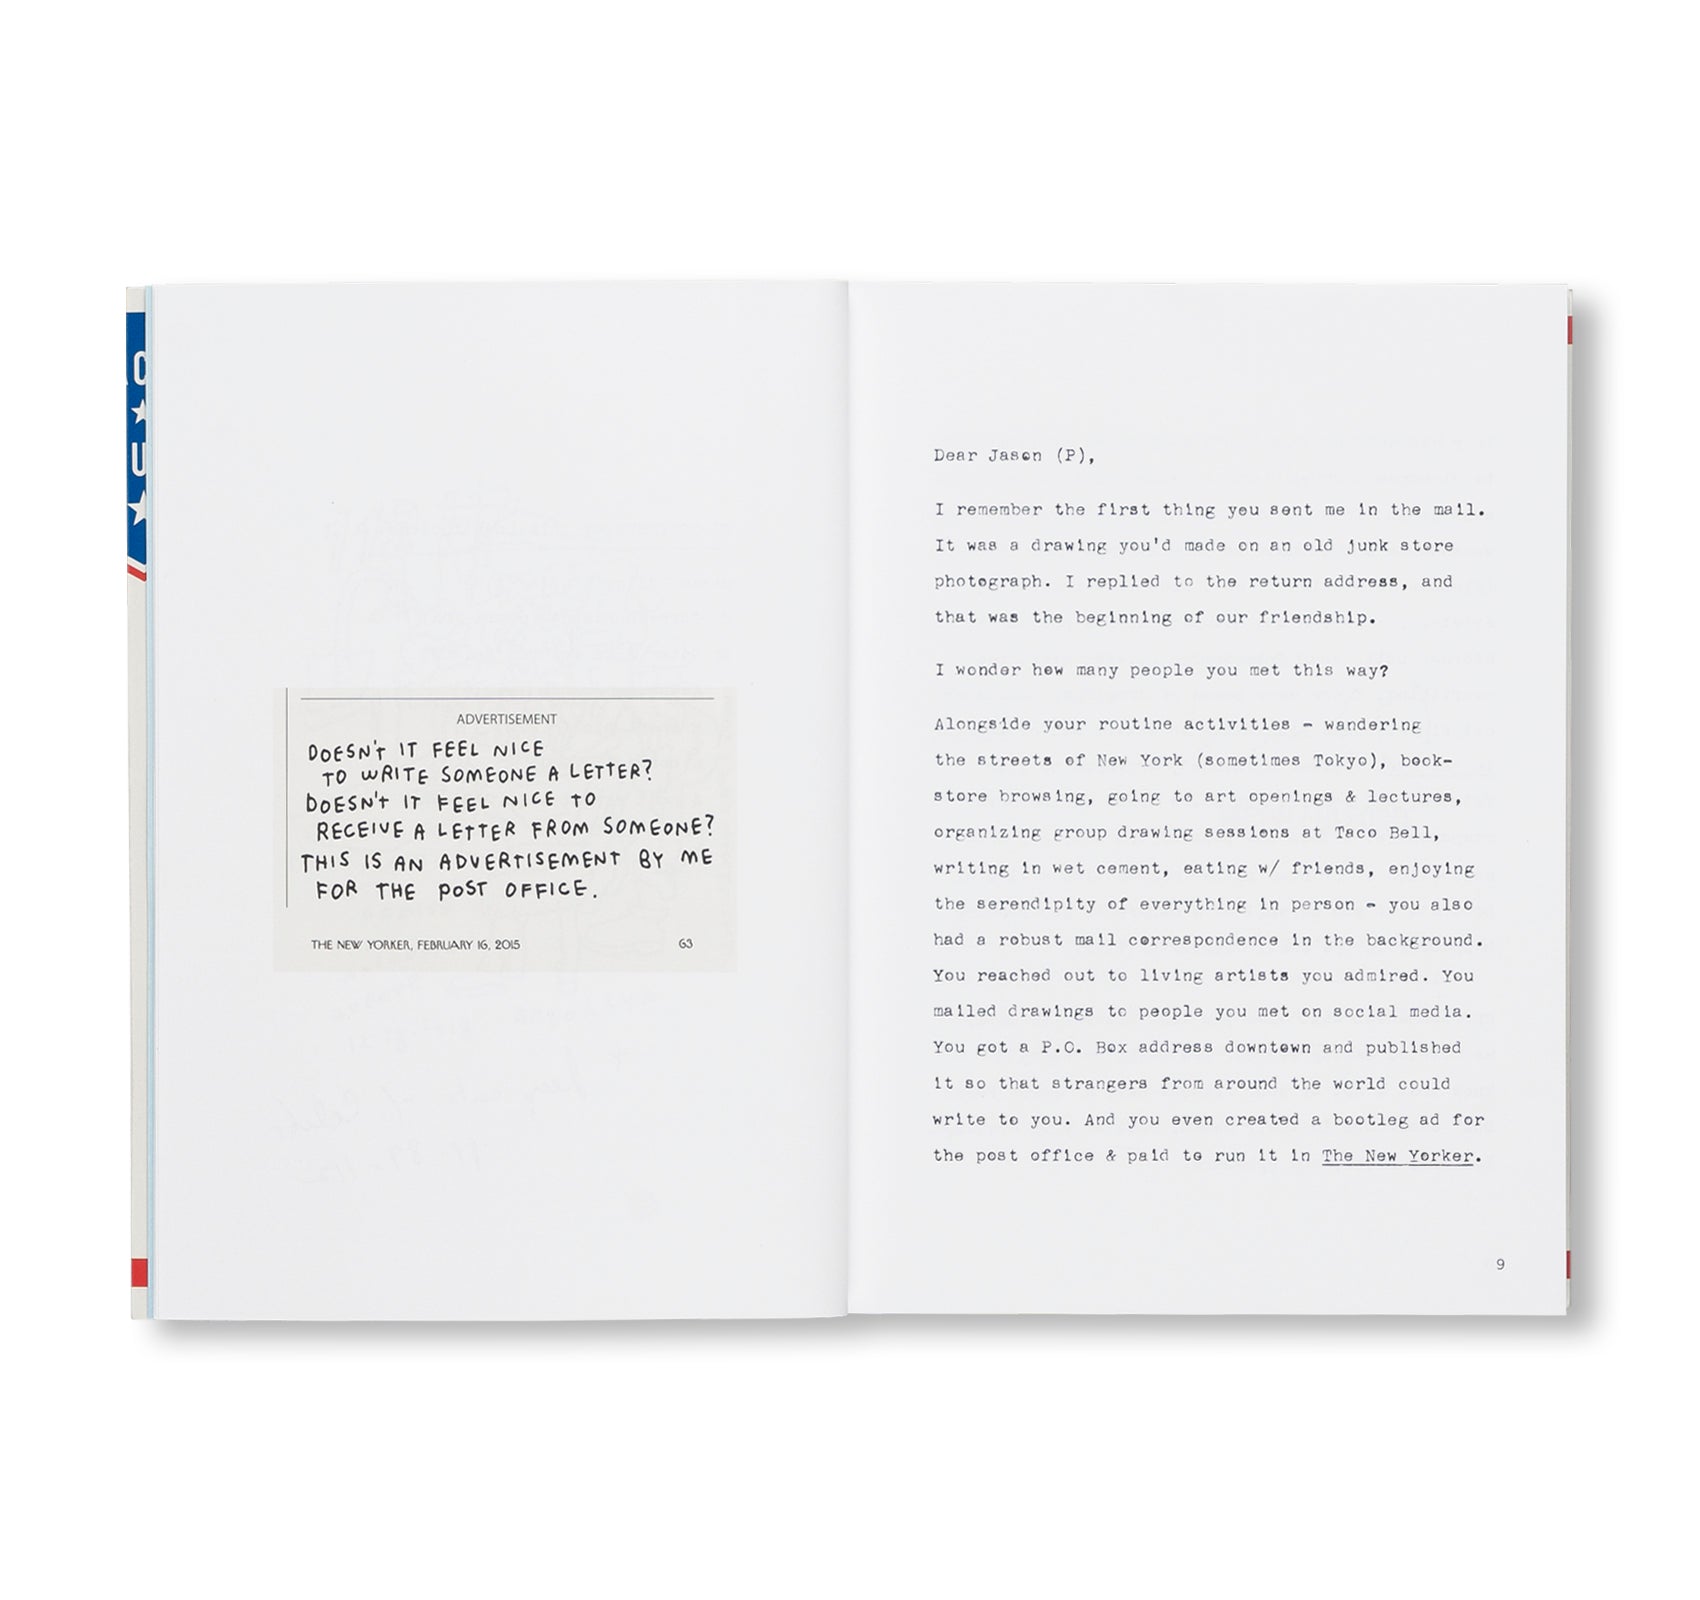 C
U
ADVERTISEMENT
DOESN'T IT FEEL NICE
TO WRITE SOMEONE A LETTER?
DOESN'T IT FEEL NICE TO
RECEIVE A LETTER FROM SOMEONE?
THIS IS AN ADVERTISEMENT BY ME
FOR THE POST OFFICE.
THE NEW YORKER, FEBRUARY 16, 2015 63
Dear Jason (P),
I remember the first thing you sent me in the mail.
It was a drawing you'd made on an old junk store
photograph. I replied to the return address, and
that was the beginning of our friendship.
I wonder how many people you met this way?
Alongside your routine activities - wandering
the streets of New York (sometimes Tokyo), book-
store browsing, going to art openings & lectures,
organizing group drawing sessions at Taco Bell,
writing in wet cement, eating w/ friends, enjoying
the serendipity of everything in person - you also
had a robust mail correspondence in the background.
You reached out to living artists you admired. You
mailed drawings to people you met on social media.
You got a P.O. Box address downtown and published
it so that strangers from around the world could
write to you. And you even created a bootleg ad for
the post office & paid to run it in The New Yorker.
9